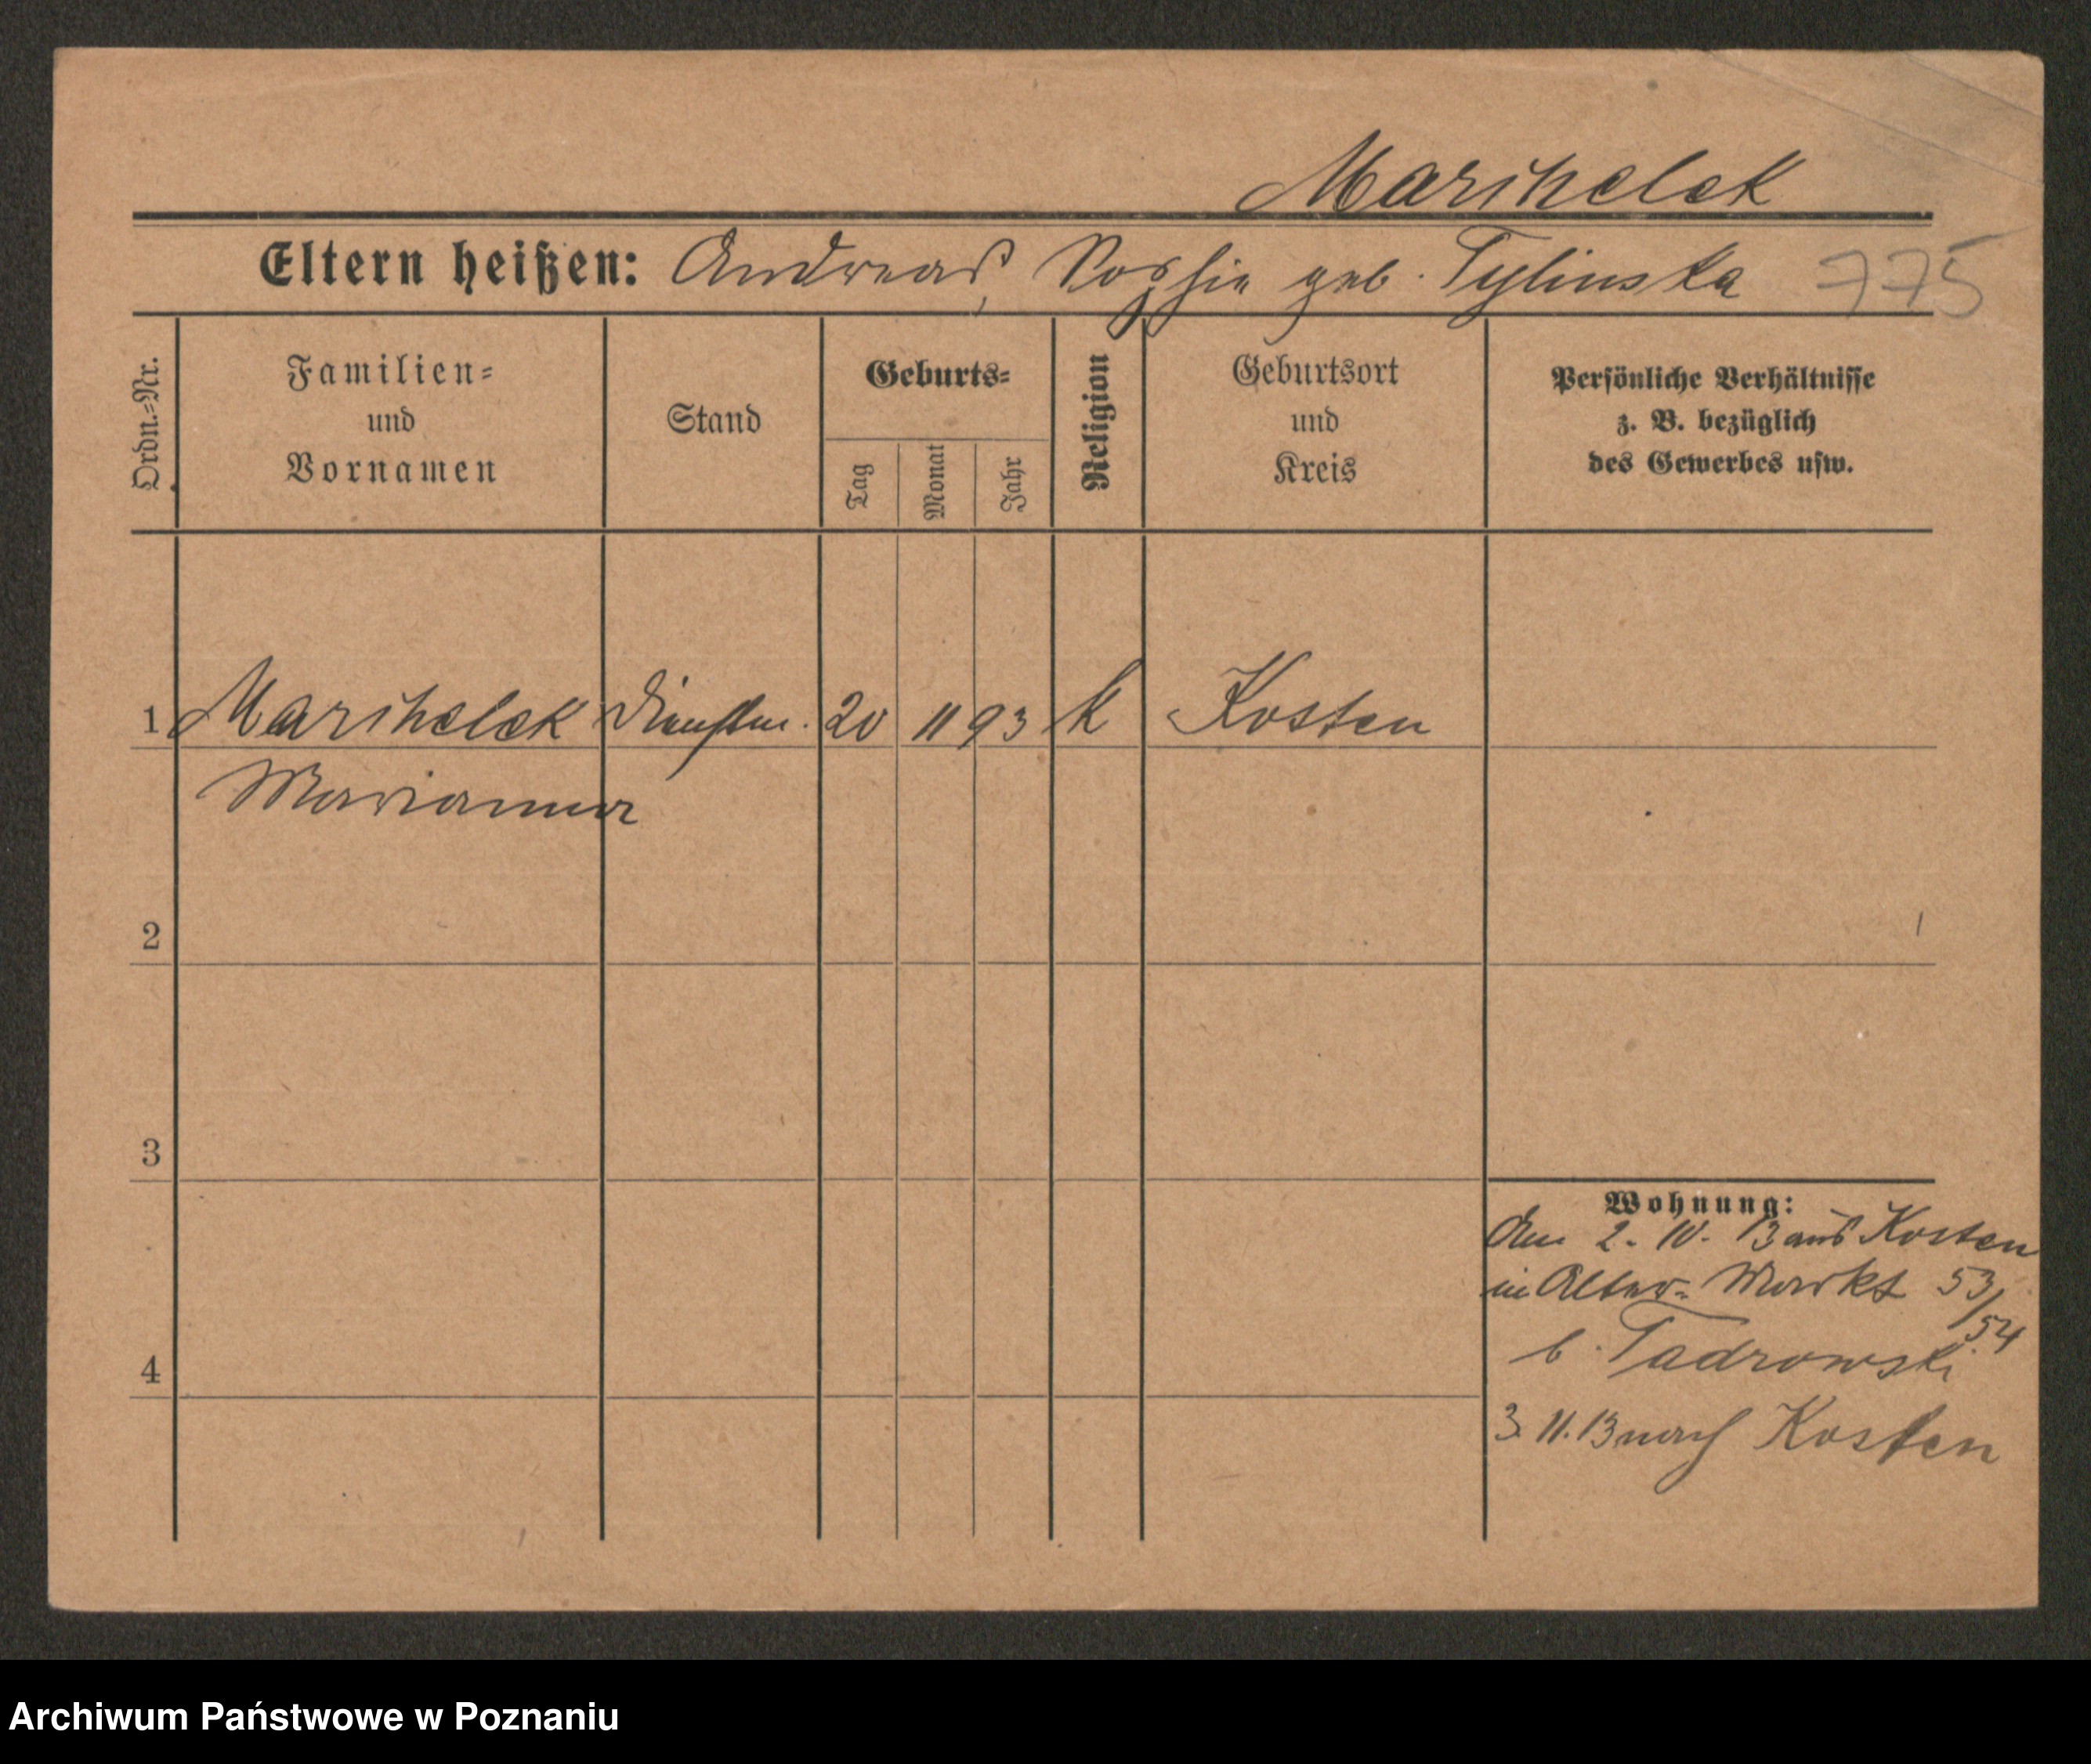 Marihelek
Eltern heißen: Andreas, Sophie geb. Tylinska 775
Ordn.-Nr.
Familien-
und
Vornamen
Stand
Geburts-
Tag
Monat
Jahr
Religion
Geburtsort
und
Kreis
Persönliche Verhältnisse
z. B. bezüglich
des Gewerbes usw.
1 Marihelek 20 11 93 k Kosten
Marianna
2
3
4
Wohnung:
Am 2. 10. 13 aus Kosten
in Alter-Markt 53/54
b. Tadrowski
3. 11. 13 nach Kosten
Archiwum Państwowe w Poznaniu